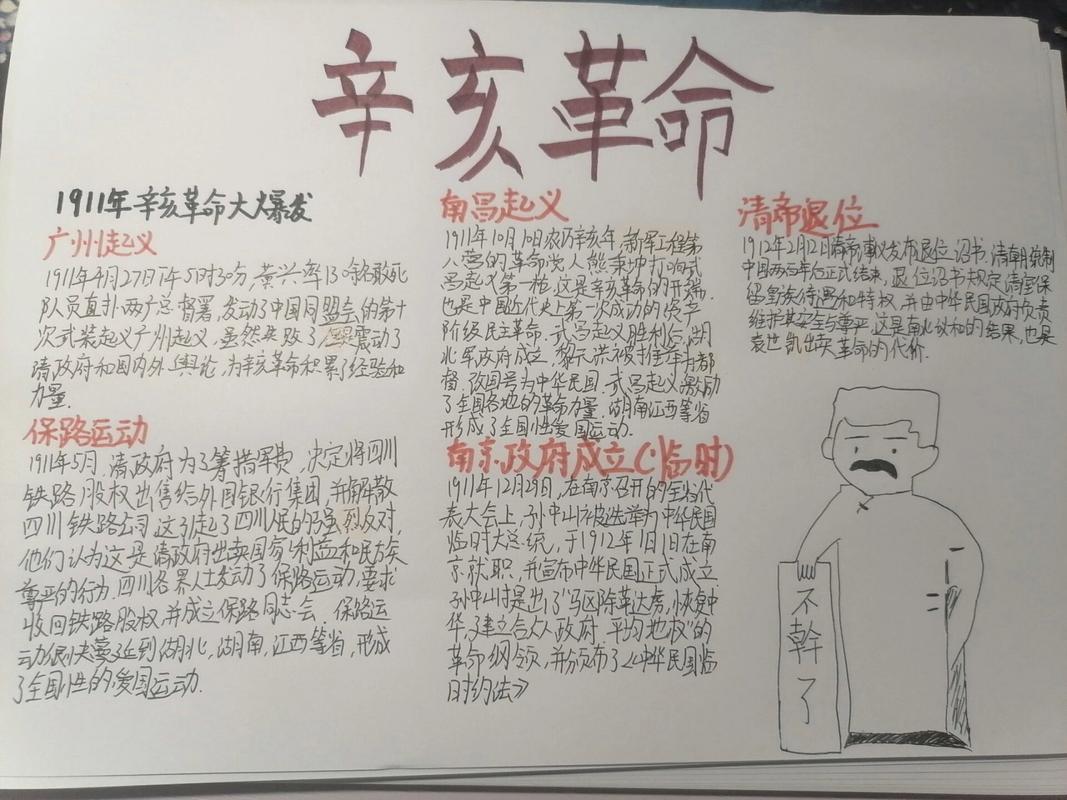 辛亥革命
1911年辛亥革命大爆发
广州起义
1911年4月27日下午5时30分,黄兴率130名敢死
队员直扑两广总督署,发动了中国同盟会的第十
次武装起义广州起义,虽然失败了但是震动了
清政府和国内外舆论,为辛亥革命积累了经验和
力量.
保路运动
1911年5月,清政府为了筹措军费,决定将四川
铁路股权出售给外国银行集团,并解散
四川铁路公司这引起了四川民的强烈反对,
他们认为这是清政府出卖国家利益和民族
尊严的行为.四川各界人士发动了保路运动,要求
收回铁路股权,并成立保路同志会.保路运
动很快蔓延到湖北,湖南,江西等省,形成
了全国性的爱国运动.
南昌起义
1911年10月10日农历辛亥年,新军工程第
八营的革命党人熊秉坤打响武
昌起义第一枪,这是辛亥革命的开端,
也是中国近代史上第一次成功的资产
阶级民主革命.武昌起义胜利后,湖
北军政府成立,黎元洪被推举为都
督.改国号为中华民国.武昌起义激励
了全国各地的革命力量,湖南江西等省
形成了全国性爱国运动.
南京政府成立(临时)
1911年12月29日,在南京召开的全省代
表大会上,孙中山被选举为中华民国
临时大总统,于1912年1月1日在南
京就职,并宣布中华民国正式成立.
孙中山时提出了"驱除鞑虏,恢复中
华,建立合众政府.平均地权"的
革命纲领,并颁布了《中华民国临
时约法》
清帝退位
1912年2月12日清帝溥仪发布退位诏书.清朝统制
中国两百年后正式结束,退位诏书规定清室保
留皇族待遇和特权,并由中华民国政府负责
维护其安全与尊严,这是南北议和的结果,也是
袁世凯出卖革命的代价.
不幹了